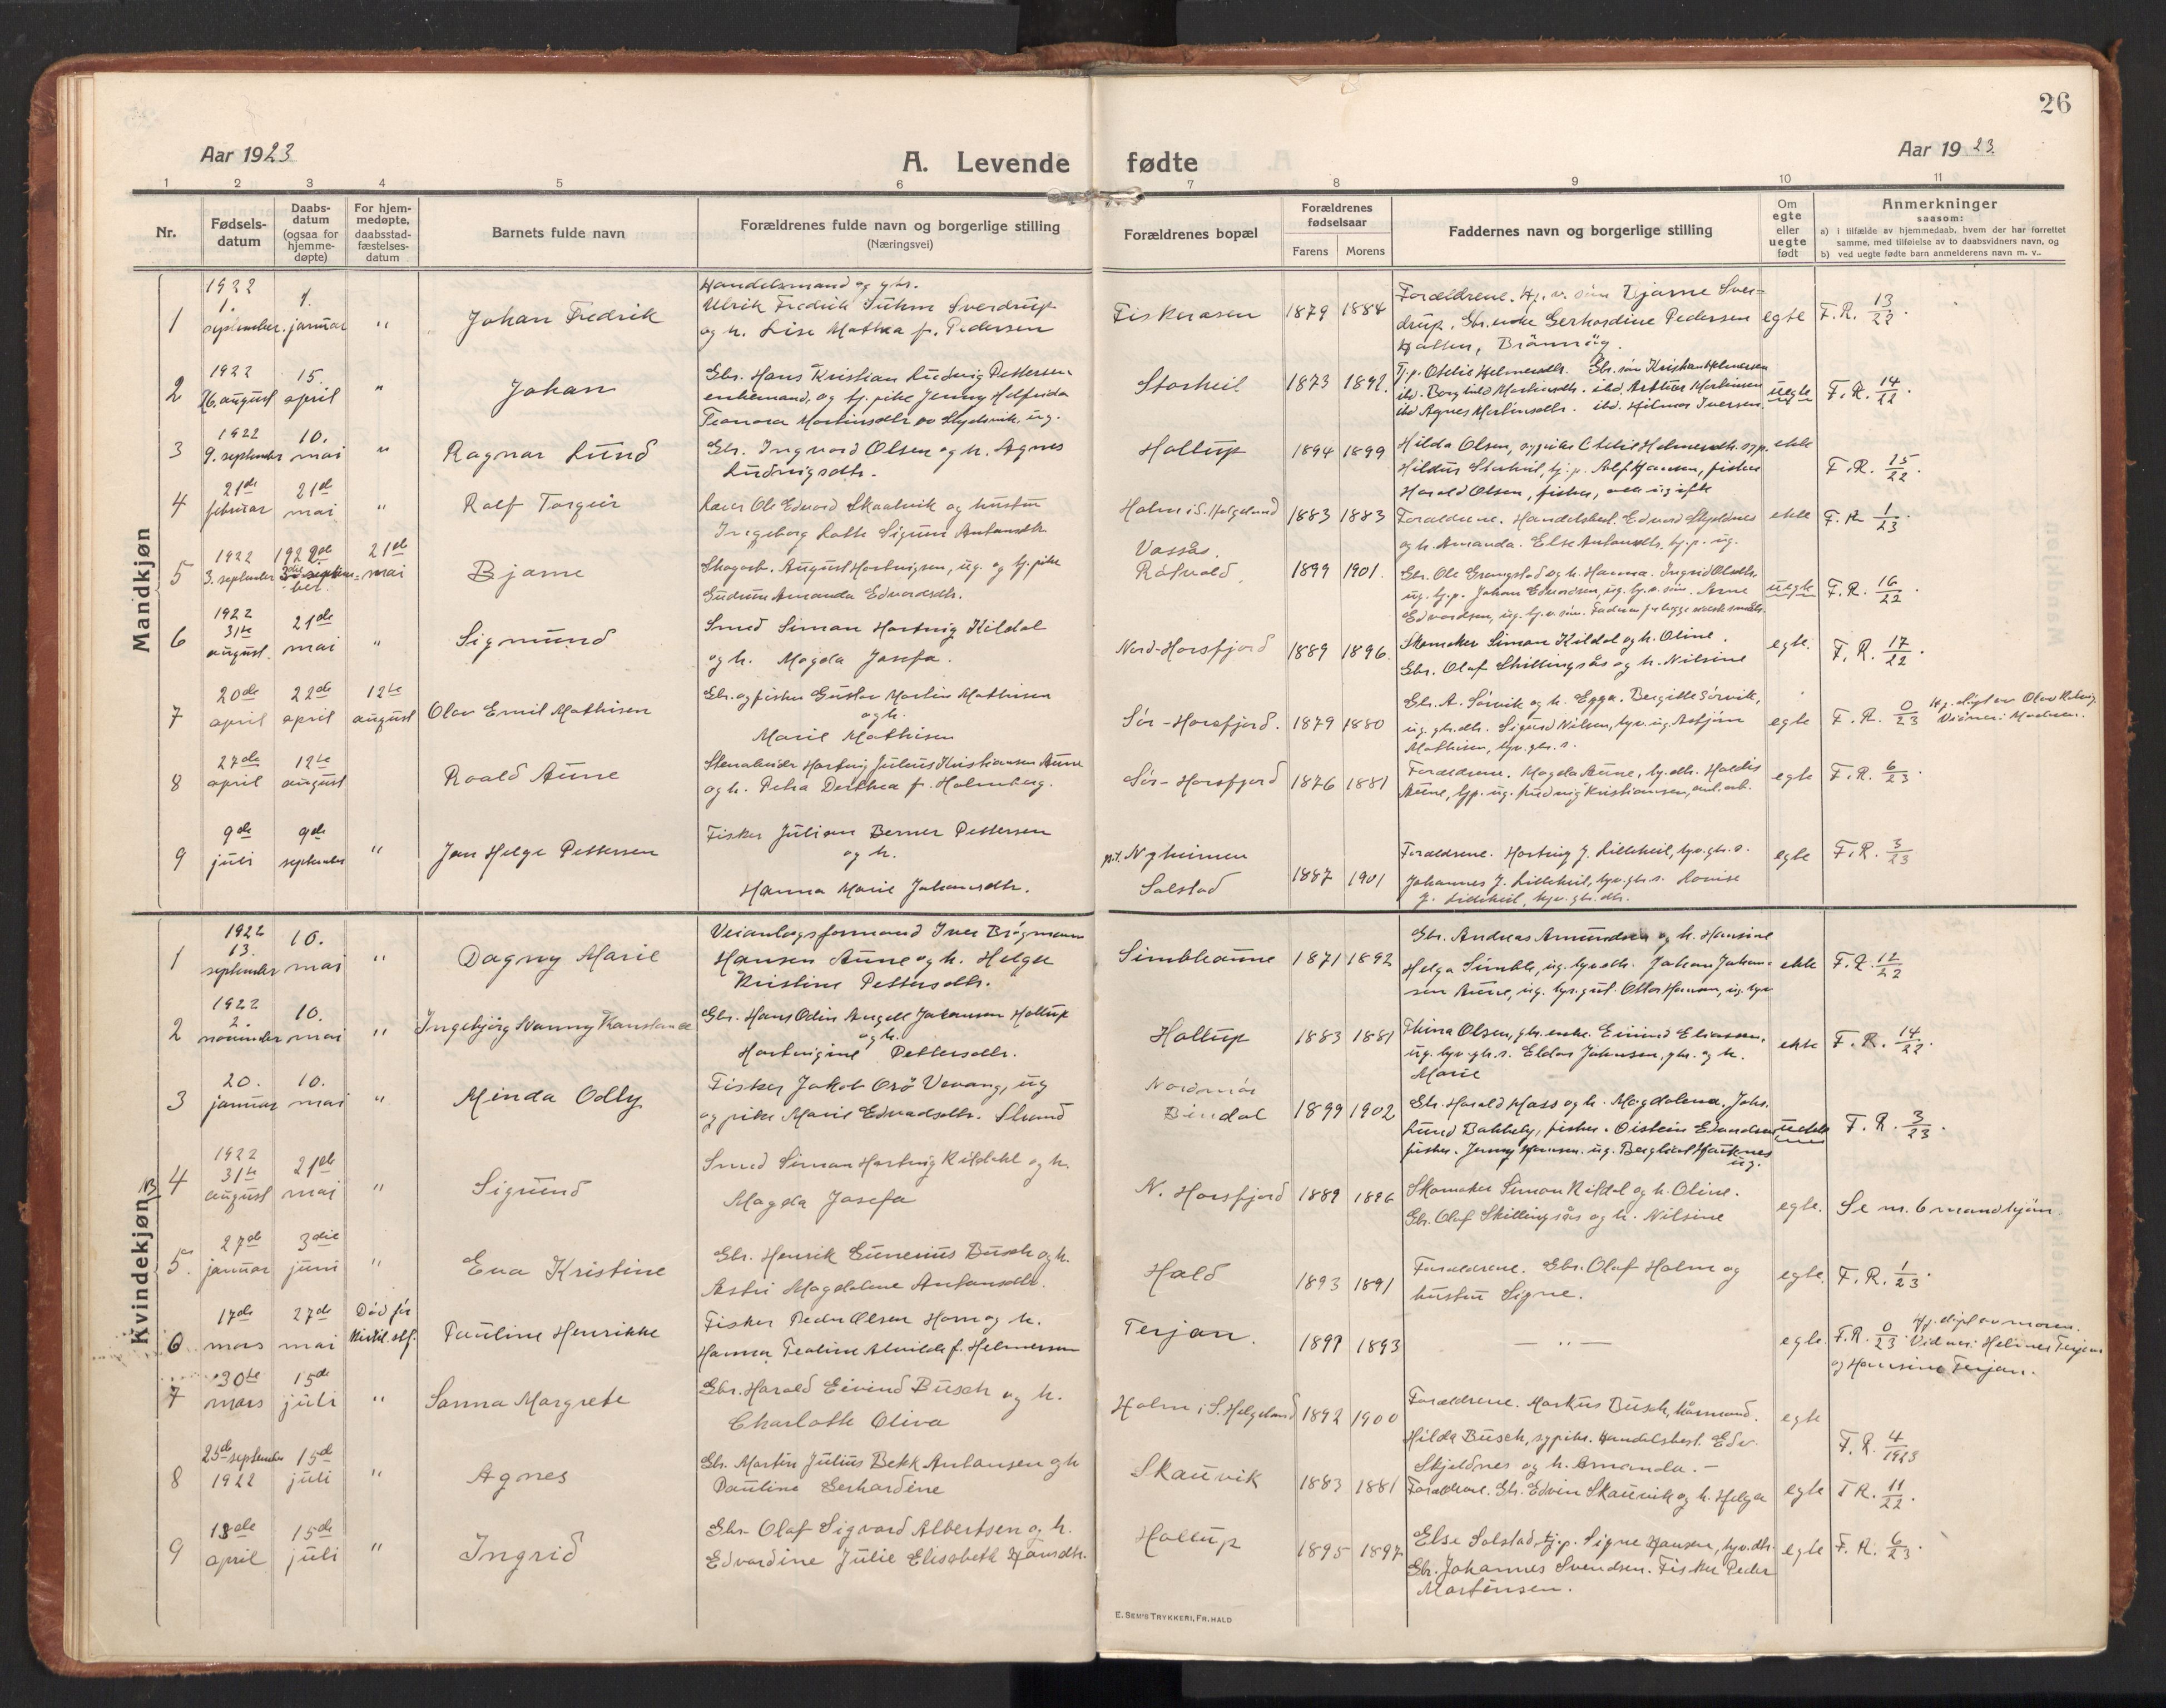 26
Aar 1923
A. Levende fødte
Aar 1923
1 2 3 4 5 6 7 8 9 10 11
Nr.
Fødsels-
datum
Daabs-
datum
(ogsaa for
hjemme-
døpte)
For hjem-
medøpte,
daabsstad-
fæstelses-
datum
Barnets fulde navn
Forældrenes fulde navn og borgerlige stilling
(Næringsvei)
Forældrenes bopæl
Forældrenes
fødselsaar
Farens Morens
Faddernes navn og borgerlige stilling
Om
egte
eller
uegte
født
Anmerkninger
saasom:
a) i tilfælde av hjemmedaab, hvem der har forrettet
samme, med tilføielse av to daabsvidners navn, og
b) ved uegte fødte barn anmelderens navn m. v..
Mandkjøn
1 1922 1. september. 1. januar " Johan Fredrik
Handelsmand og gbr.
Ulrik Fredrik Suhm Sverdrup
og h. Lise Mathea f. Pedersen
Fiskerosen 1879 1884
Forældrene. Hj. v. søn Bjarne Sver=
drup. Gbr. enke Gerhardine Pedersen
Halsen, Brønnøy.
egte F. R. 13/22.
2 1922 26. august 15. april " Johan
Gbr. Hans Kristian Ludvig Pettersen
enkemand, og tj. pike Jenny Helfrida
Leonora Mortinsdtr. ug.
Storheil 1873 1892.
Tj. p. Otelie Helmersdtr. Gbr. søn Kristian Helmersen
ibd. Borghild Martinsdtr. ibd. Arthur Mortinsen
ibd Agnes Mortinsdtr. ibd. Hilmar Iversen
uegte F. R. 14/22.
3 1922 9. september 10. mai " Ragnar Lund
Gbr. Ingvard Olsen og h. Agnes
Ludvigsdtr.
Holtup 1894 1899
Hilda Olsen, sypike Otelie Helmersdtr. syp.
Hildur Storheil, tj. p. Alf Hansen, fisker
Harald Olsen, fisker, alle ugifte
ekte F. R. 15/22.
4 21de februar 21de mai " Ralf Torgeir
Lærer Ole Edvard Skaalvik og hustru
Ingeborg Lotte Sigrun Antonsdtr.
Holm i S. Helgeland 1883 1883
Forældrene. Handelsbest. Edvard Skjeldnes
og h. Amanda. Else Antonsdtr. tj. p. ug.
ekte F. R. 1/23.
5 1922 3. september 1922 21de mai Bjarne
Skogarb. August Hartvigsen, ug. og tj. pike
Gudrun Amanda Edvardsdtr.
Vassås.
Røtvold 1899 1901.
Gbr. Ole Grangstad og h. Hanna. Ingrid Olsdtr.
ug. tj. p. Johan Edvardsen, ug. tj. v. søn. Arne
Edvardsen, ug. tj. v. søn.
uegte F. R. 16/22.
6 1922 31te august. 21de mai " Sigmund
Smed Simon Hartvig Kildal
og h. Magda Josefa.
Nord-Horsfjord 1889 1896.
Skomaker Simon Kildal og h. Oline.
Gbr. Olaf Skillingsås og h. Nilsine
egte. F. R. 17/22.
7 20de april 22de april 12te august Olav Emil Mathisen
Gbr. og fisker Gustav Martin Mathisen
og h.
Marie Mathisen
Sør-Horsfjord. 1879 1880
Gbr. A. Sørvik og h. Egga. Bergitte Sørvik,
ug. gb. dtr. Sigurd Nilsen, tyv. ug. Asbjørn
Mathisen, tyv. gbr. s.
egte F. R. 0/23
8 27de april 12te august Roald Aune
Stenarbeider Hartvig Julius Kristiansen Aune
og h. Petra Dorthea f. Holmberg.
Sør-Horsfjord 1876 1881
Forældrene. Magda Aune, ty. dtr. Haldis
Aune, typ. ug. Ludvig Kristiansen, anl. arb.
egte F. R. 6/23.
9 9de juli 9de september " Jan Helge Pettersen
Fisker Julian Berner Pettersen
og h.
Hanna Marie Johansdtr.
p.t. Nyheimen
Solstad 1887 1901
Forældrene. Hartvig J. Lilleheil, tyv. gb. s.
Johannes J. Lilleheil, tyv. gb. s. Lovise
J. Lilleheil, tyv. gbr. dtr.
egte F. R. 3/23
Kvindekjøn
1 1922 13. september 10. mai " Dagny Marie
Veianlægsformand Iver Brøgmann
Hansen Aune og h. Helga
Kristine Pettersdtr.
Simleaune 1871 1892
Gbr. Andreas Amundsen og h. Hansine
Helga Simle, ug. tyv. dtr. Johan Johan=
sen Aune, ug. tyv. gut. Ottar Hansen, ug. tyv
ekte F. R. 12/22
2 1922 2. november 10. mai " Ingebjørg Nanny Konstance
Gbr. Hans Odin Angell Johansen Holtup
og h.
Hartvigine Pettersdtr.
Holtup 1883 1881
Thina Olsen, gbr. enke. Eivind Eliassen,
ug. tyv. gb. s. Eldar Johansen, gbr. og h.
Marie
ekte F. R. 14/22.
3 20. januar 10. mai " Minda Odly
Fisker Jakob Orø Vevang, ug
og pike Marie Edvardsdtr. Strand
Nordmør
Bindal 1899 1902
Gbr. Harald Hass og h. Magdalena. Johs.
Lund Bakkeby, fisker. Oistein Elandsen
fisker. Jenny Hansen. ug. Bergliot Horsnes
ug.
uekte F. R. 3/23.
NB 4 1922 31te august 21de mai " Sigmund
Smed Simon Hartvig Kildahl og h.
Magda Josefa
N. Horsfjord 1889 1896
Skomaker Simon Kildal og h. Oline.
Gbr. Olaf Skillingsås og h. Nilsine
egte. Se nr. 6 mandkjøn
5. 27de januar 3die juni " Eva Kristine
Gbr. Henrik Gunerius Busch og h.
Astri Magdalene Antonsdtr.
Hald 1893 1891
Forældrene. Gbr. Olaf Holm og
hustru Signe.
egte. F. R. 1/23.
6 17de mars 27de mai Død før kirkel. stf. Pauline Henrikke
Fisker Peder Olsen Horn og h.
Hanna Tealine Alvilde f. Helmersen
Terjan. 1899 1893
— " —
egte F. R. 0/23. Hj. døpt av moren.
Vidner: Helmer Terjan
og Hansine Terjan.
7 30te mars 15de juli " Sanna Margrete
Gbr. Harald Eivind Busch og h.
Charlotte Oliva
Holm i S. Helgeland 1892 1900
Forældrene. Markus Busch,
Hilda Busch, sypike. Handelsbest. Edv.
Skjeldnes og h. Amanda. –
egte F. R. 4/1923
8 25de september 1922 15de juli " Agnes
Gbr. Martin Julius Bekk Antonsen og h
Pauline Gerhardine
Skauvik 1883 1881
Forældrene. Gbr. Edvin Skauvik og h. Helga
egte F R. 11/22.
9 13de april 15de juli " Ingrid
Gbr. Olaf Sigvard Albertsen og h.
Edvardine Julie Elisabeth Hansdtr.
Holtup 1895 1897
Else Solstad tj. p. Signe Hansen, tyv. dtr.
Gbr. Johannes Svendsen. Fisker Peder
Martinsen.
egte F. R. 6/23.
E. SEM'S TRYKKERI, FR. HALD